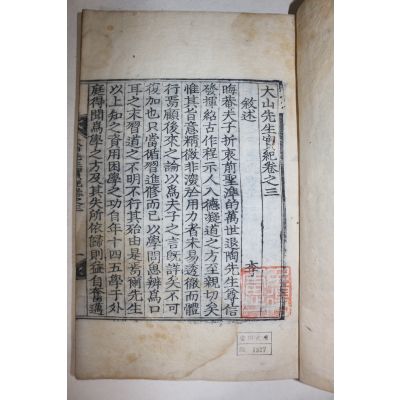 大山先生實紀卷之三
敘述
李
晦菴夫子折衷前聖濂的萬世退陶先生尊信
發揮紹古作程示人入德凝道之方至親切矣
惟其旨意精微非深於用力者未易透徹而體
行焉顧後來之論以爲夫子之言旣詳矣不可
復加也只當循習進修而已以學問思辨爲口
耳之末習道之不明不行其殆由是焉爾先生
以上知之資用困學之功自年十四五學于外
庭得聞爲學之方及其失所依歸則益自奮邁
1327